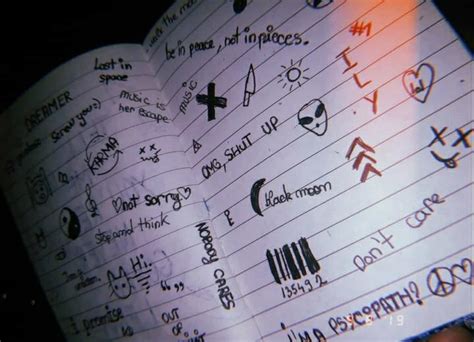 Lost in
space
DREAMER
Screw you:)
Music is
her escape
KARMA
Not sorry
stop and think
Hi.
I promise
OUT
OF
walk the
be in peace, not in pieces.
MUSIC
#1
I
L
Y
OMG, SHUT UP
black moon
NOBODY CARES
135492
Don't care
I'MA PSYCOPATH?
19